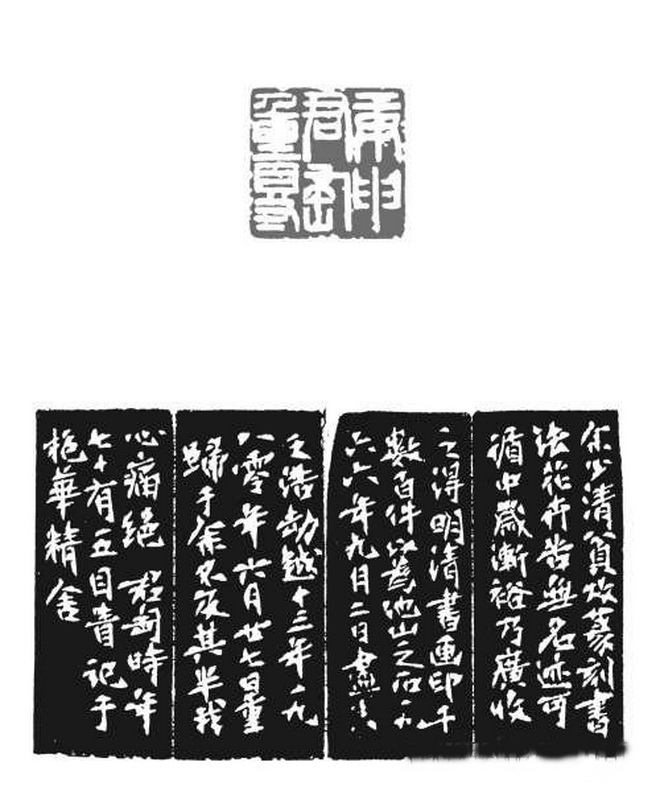 庚申
君匋
重得
余少清貧攻篆刻書
法花卉苦無名迹可
循中歲漸裕乃廣收
之得明清書畫印千
數百件以為他山之石一九
六六年九月二日
之浩劫越十三年一九
八零年六月廿七日重
歸于余只及其半我
心痛絕君匋時年
七十有五目眚記于
抱華精舍